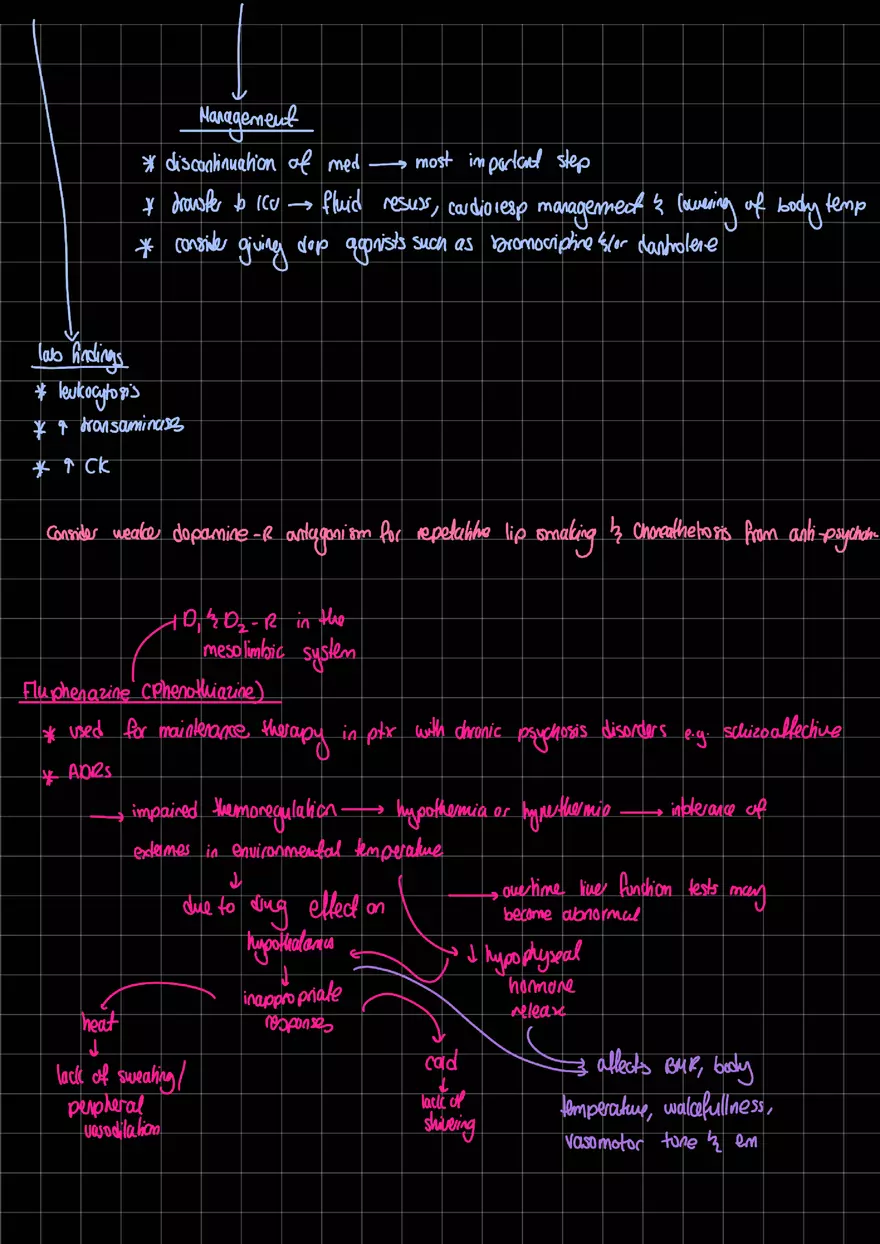 Management
* discontinuation of med → most important step
* transfer to ICU → fluid resuss, cardioresp management & lowering of body temp
* consider giving dop agonists such as bromocriptine &/or dantrolene
lab findings
* leukocytosis
* ↑ transaminases
* ↑ CK
Consider weaker dopamine-R antagonism for repetative lip smaking & Choreathetosis from anti-psychot
D1 & D2-R in the
mesolimbic system
Fluphenazine (Phenothiazine)
* used for maintenance therapy in ptx with chronic psychosis disorders e.g. schizoaffective
* ADRs
→ impaired thermoregulation → hypothermia or hyperthermia → intolerance of
extremes in environmental temperature
→ overtime liver function tests may
become abnormal
due to drug effect on
hypothalamus
↓ hypophyseal
hormone
release
inappropriate
responses
heat
lack of sweating/
peripheral
vasodilation
cold
lack of
shivering
affects BMR, body
temperature, wakefullness,
vasomotor tone & em